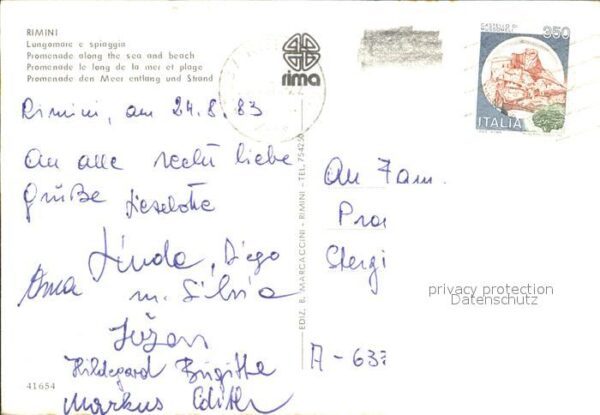 RIMINI
Lungomare e spiaggia
Promenade along the sea and beach
Promenade le long de la mer et plage
Promenade den Meer entlang und Strand
rima
CASTELLO DI
350
ITALIA
Rimini, am 24.8.83
An alle recht liebe
Grüße Lieselotte
Linda, Diego
Oma m. Silvia
Hildegard Brigitte
Markus Edith
41654
EDIZ. B. MARCACCINI - RIMINI - TEL. 754230
An Fam.
Pra
Stergi
A-637
privacy protection
Datenschutz